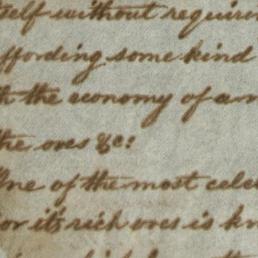 self without requirin
ffording some kind
h the economy of a m
the ores &c:
One of the most cele
for it's rich ores is kn